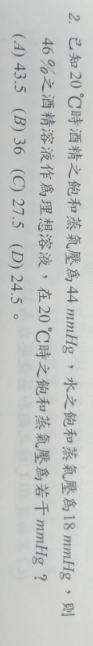 2. 已知20℃時酒精之飽和蒸氣壓為44 mmHg，水之飽和蒸氣壓為18 mmHg，則
46%之酒精溶液作為理想溶液，在20℃時之飽和蒸氣壓為若干mmHg？
(A) 43.5 (B) 36 (C) 27.5 (D) 24.5。